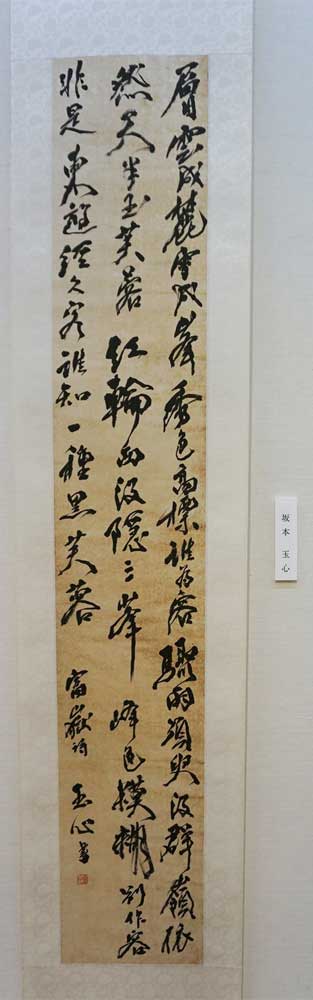 層雲成麓雪成峯秀色高標誰為容驟雨須臾没群嶺依
然天半玉芙蓉紅輪西没隠三峯峰色模糊別作容
非是東遊経久客誰知一種黒芙蓉 富嶽詩 玉心書
坂本 玉心